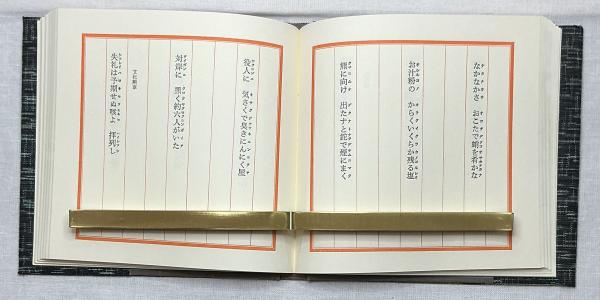 なかなかさ おこたで蛸を肴かな
お汁粉の からくいくらか残る塩
熊に向け 出たナと鉈で煙にまく
役人に 気さくで臭きにんにく屋
対岸に 黒く約六人がいた
文化勲章
失礼は予期せぬ咳よ 拝列し